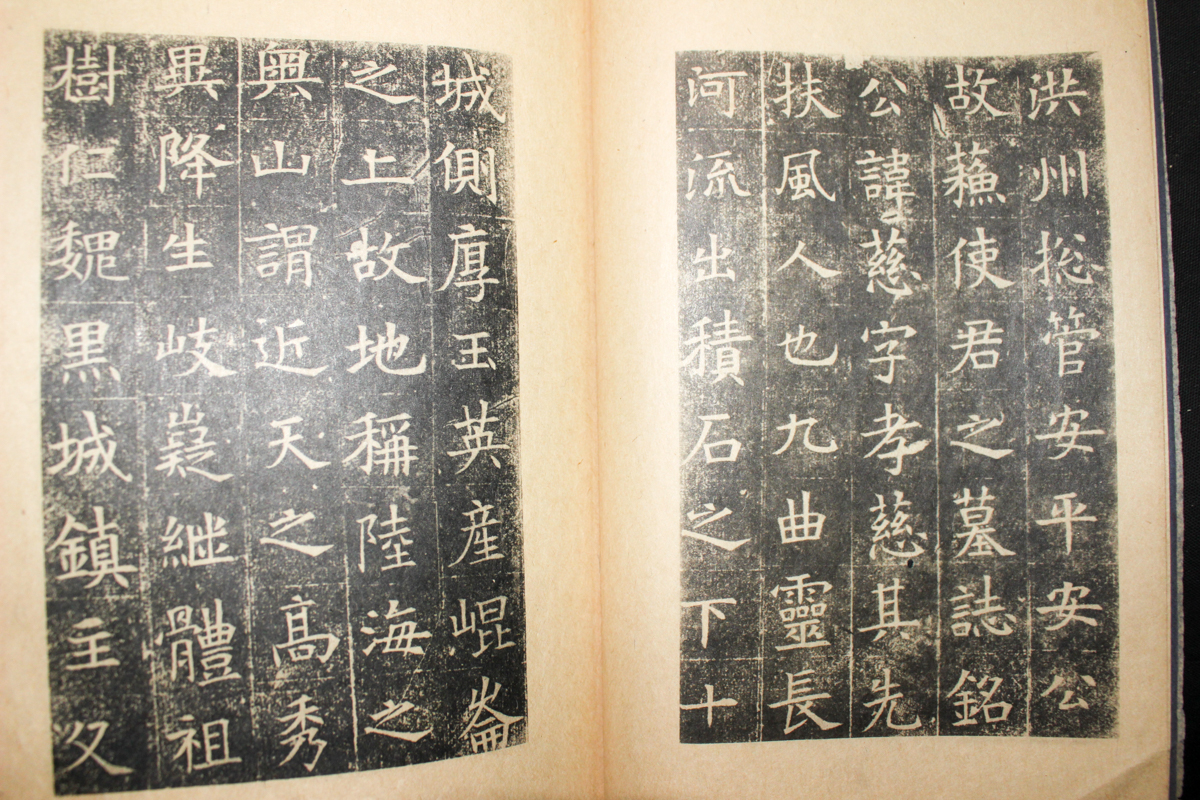 洪州捴管安平安公
故蘓使君之墓誌銘
公諱慈字孝慈其先
扶風人也九曲靈長
河流出積石之下十
城側厚玉英産崐崘
之上故地稱陸海之
奥山謂近天之高秀
異降生岐嶷継體祖
樹仁魏黒城鎮主父